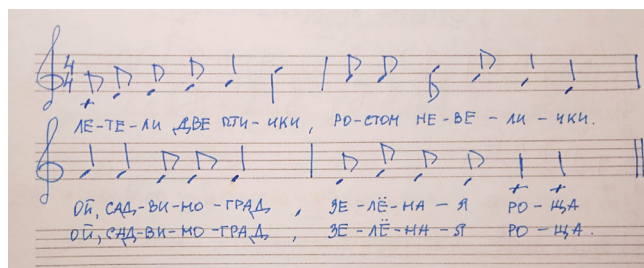 4/4
ЛЕ-ТЕ-ЛИ ДВЕ ПТИ-ЧКИ, РО-СТОМ НЕ-ВЕ-ЛИ-ЧКИ.
ОЙ, САД-ВИ-НО-ГРАД, ЗЕ-ЛЁ-НА-Я РО-ЩА
ОЙ, САД-ВИ-НО-ГРАД, ЗЕ-ЛЁ-НА-Я РО-ЩА.